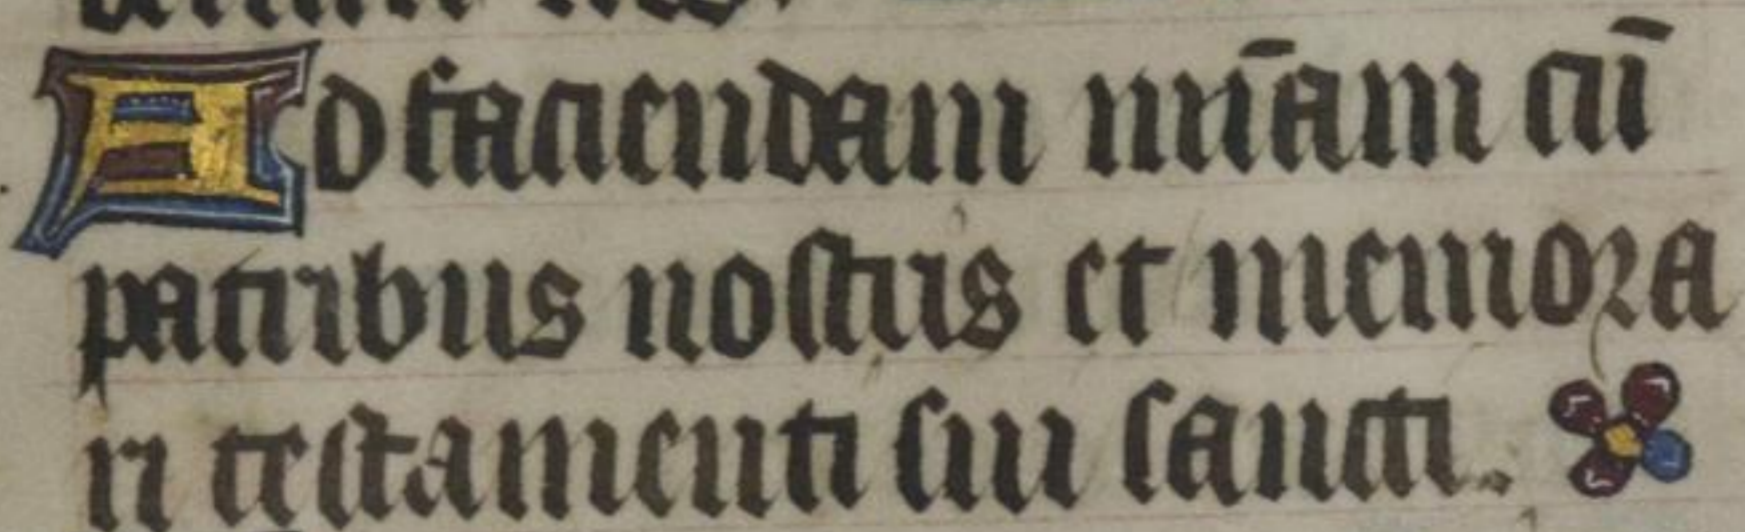 Ad faciendam mīam cū
patribus nostris et memora
ri testamenti sui sancti.